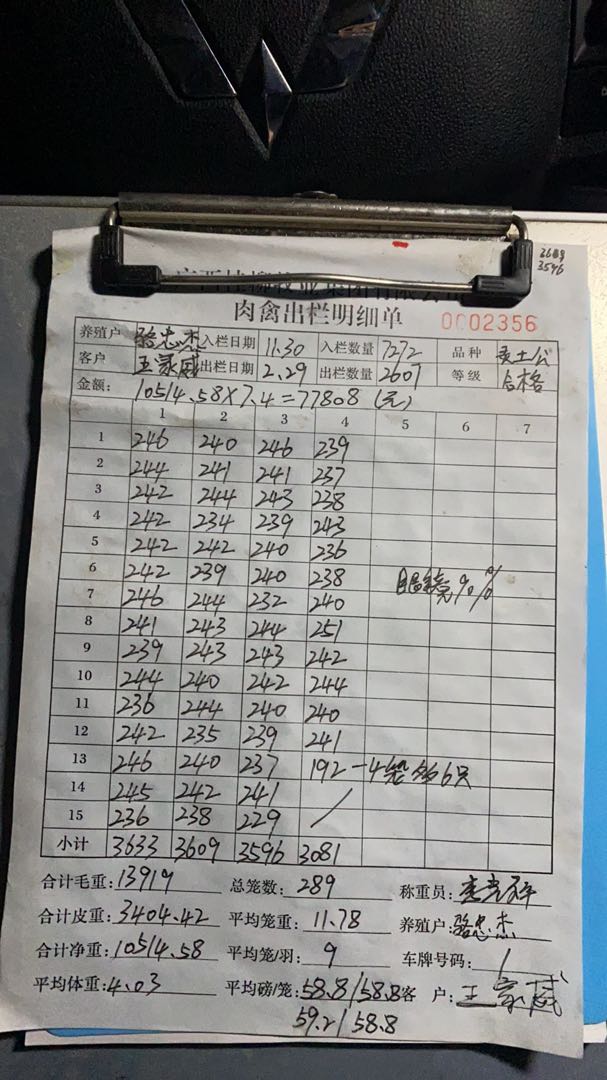 3689
3596
肉禽出栏明细单 0002356
养殖户 骆忠杰 入栏日期 11.30 入栏数量 7212 品种 土公
客户 王家威 出栏日期 2.29 出栏数量 2607 等级 合格
金额: 10514.58×7.4=77808 (元)
1 2 3 4 5 6 7
1 246 240 246 239
2 244 241 241 237
3 242 244 243 238
4 242 234 239 243
5 242 242 240 236
6 242 239 240 238 眼镜90%
7 246 244 232 240
8 241 243 244 251
9 239 243 243 242
10 244 240 242 244
11 236 244 240 240
12 242 235 239 241
13 246 240 237 192-4笼多6只
14 245 242 241 /
15 236 238 229
小计 3633 3609 3596 3081
合计毛重: 13919 总笼数: 289 称重员:
合计皮重: 3404.42 平均笼重: 11.78 养殖户: 骆忠杰
合计净重: 10514.58 平均笼/羽: 9 车牌号码: /
平均体重: 4.03 平均磅/笼: 58.8/58.8 客 户: 王家威
59.2/58.8